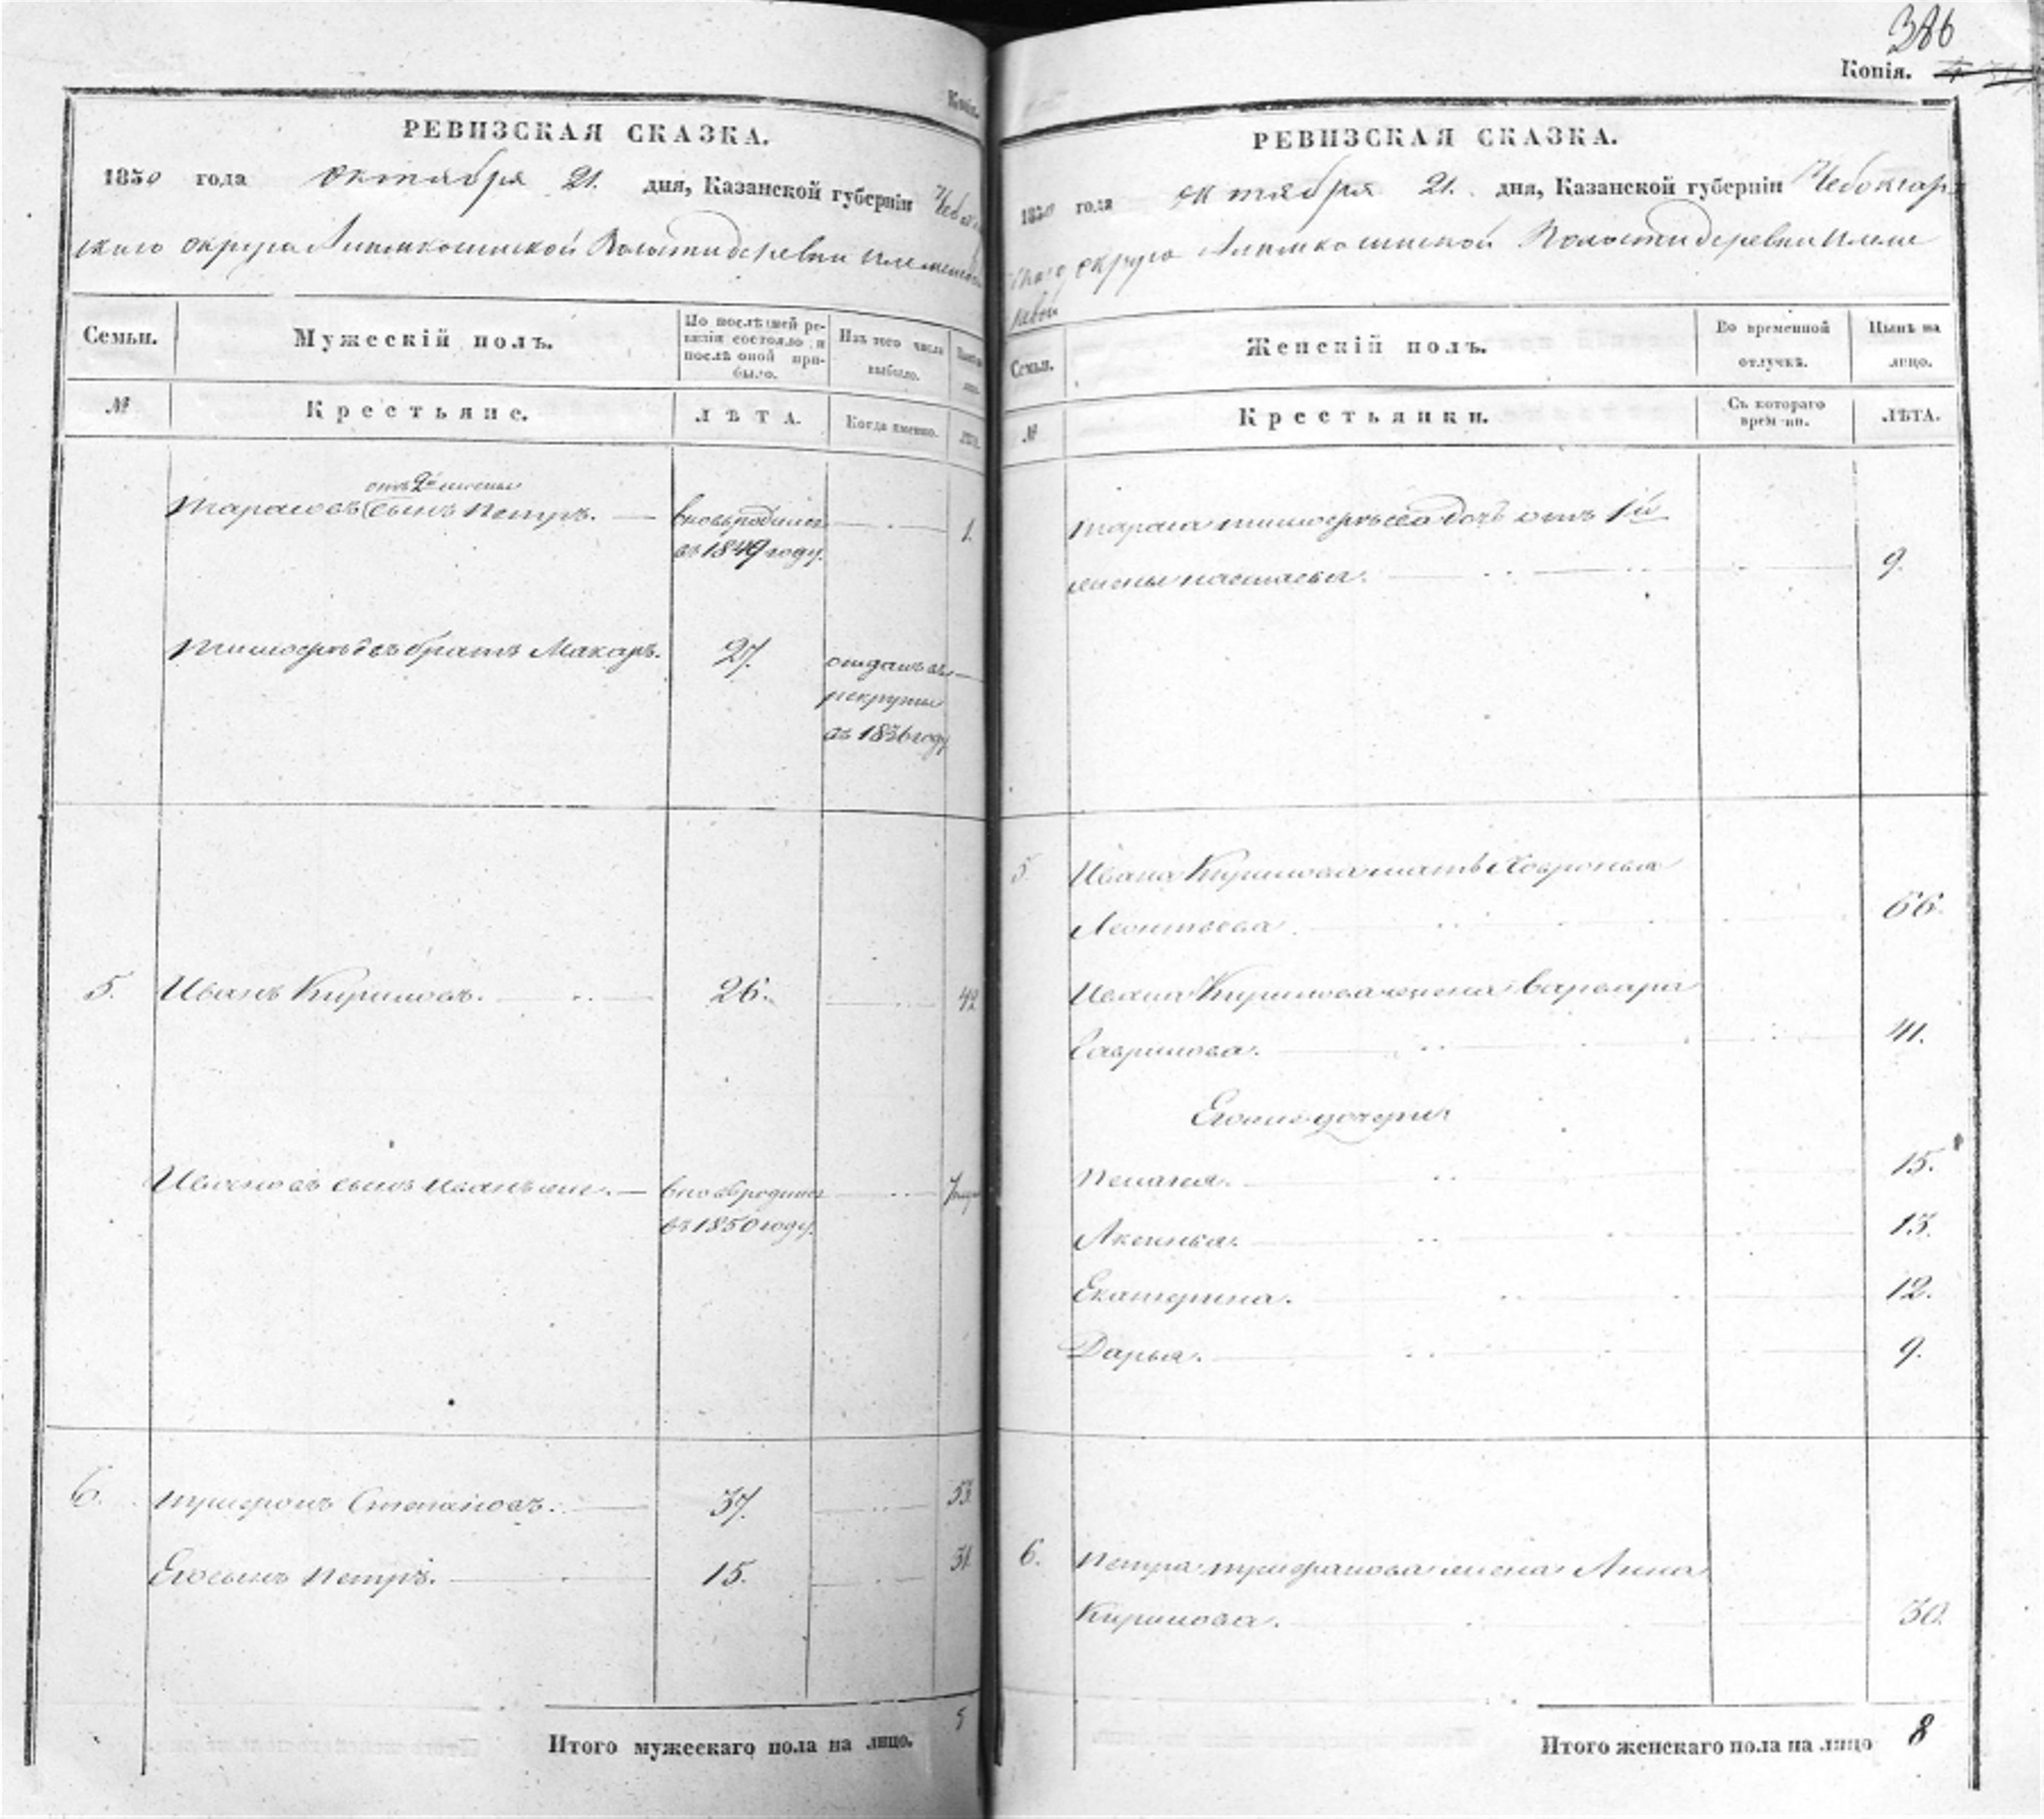 Копія.
РЕВИЗСКАЯ СКАЗКА.
1850 года октября 21. дня, Казанской губерніи
скаго округа волости деревни
Семьи.
Мужескій полъ.
По послѣдней ревизіи состояло и послѣ оной прибыло.
Изъ того числа выбыло.
№
Крестьяне.
ЛѢТА.
Когда именно.
ЛѢТА.
отъ 2й жены
Тарасовъ сынъ Петръ.
вновь родился
1.
въ 1849 году.
Тимофѣевъ братъ Макаръ.
27.
отданъ въ
рекруты
въ 1836 году
5. Иванъ Кириловъ. 26. 42
Ивановъ сынъ Иванъ же. вновь родился
въ 1850 году.
6. Трифонъ Степановъ. 37. 53
Его сынъ Петръ. 15. 31
Итого мужескаго пола на лицо. 5
386
Копія.
РЕВИЗСКАЯ СКАЗКА.
1850 года октября 21. дня, Казанской губерніи Чебоксар
скаго округа волости деревни
Семьи.
Женскій полъ.
Во временной отлучкѣ.
Нынѣ на лицо.
№
Крестьянки.
Съ котораго времени.
ЛѢТА.
Тараса Тимофѣева дочь отъ 1й
жены Настасья. 9.
5. Ивана Кирилова мать Хавронья
Леонтьева. 66.
Ивана Кирилова жена Варвара
Гаврилова. 41.
Его же дочери
Пелагея. 15.
Аксинья. 13.
Екатерина. 12.
Дарья. 9.
6. Петра Трифанова жена Анна
Кирилова. 30.
Итого женскаго пола на лицо 8